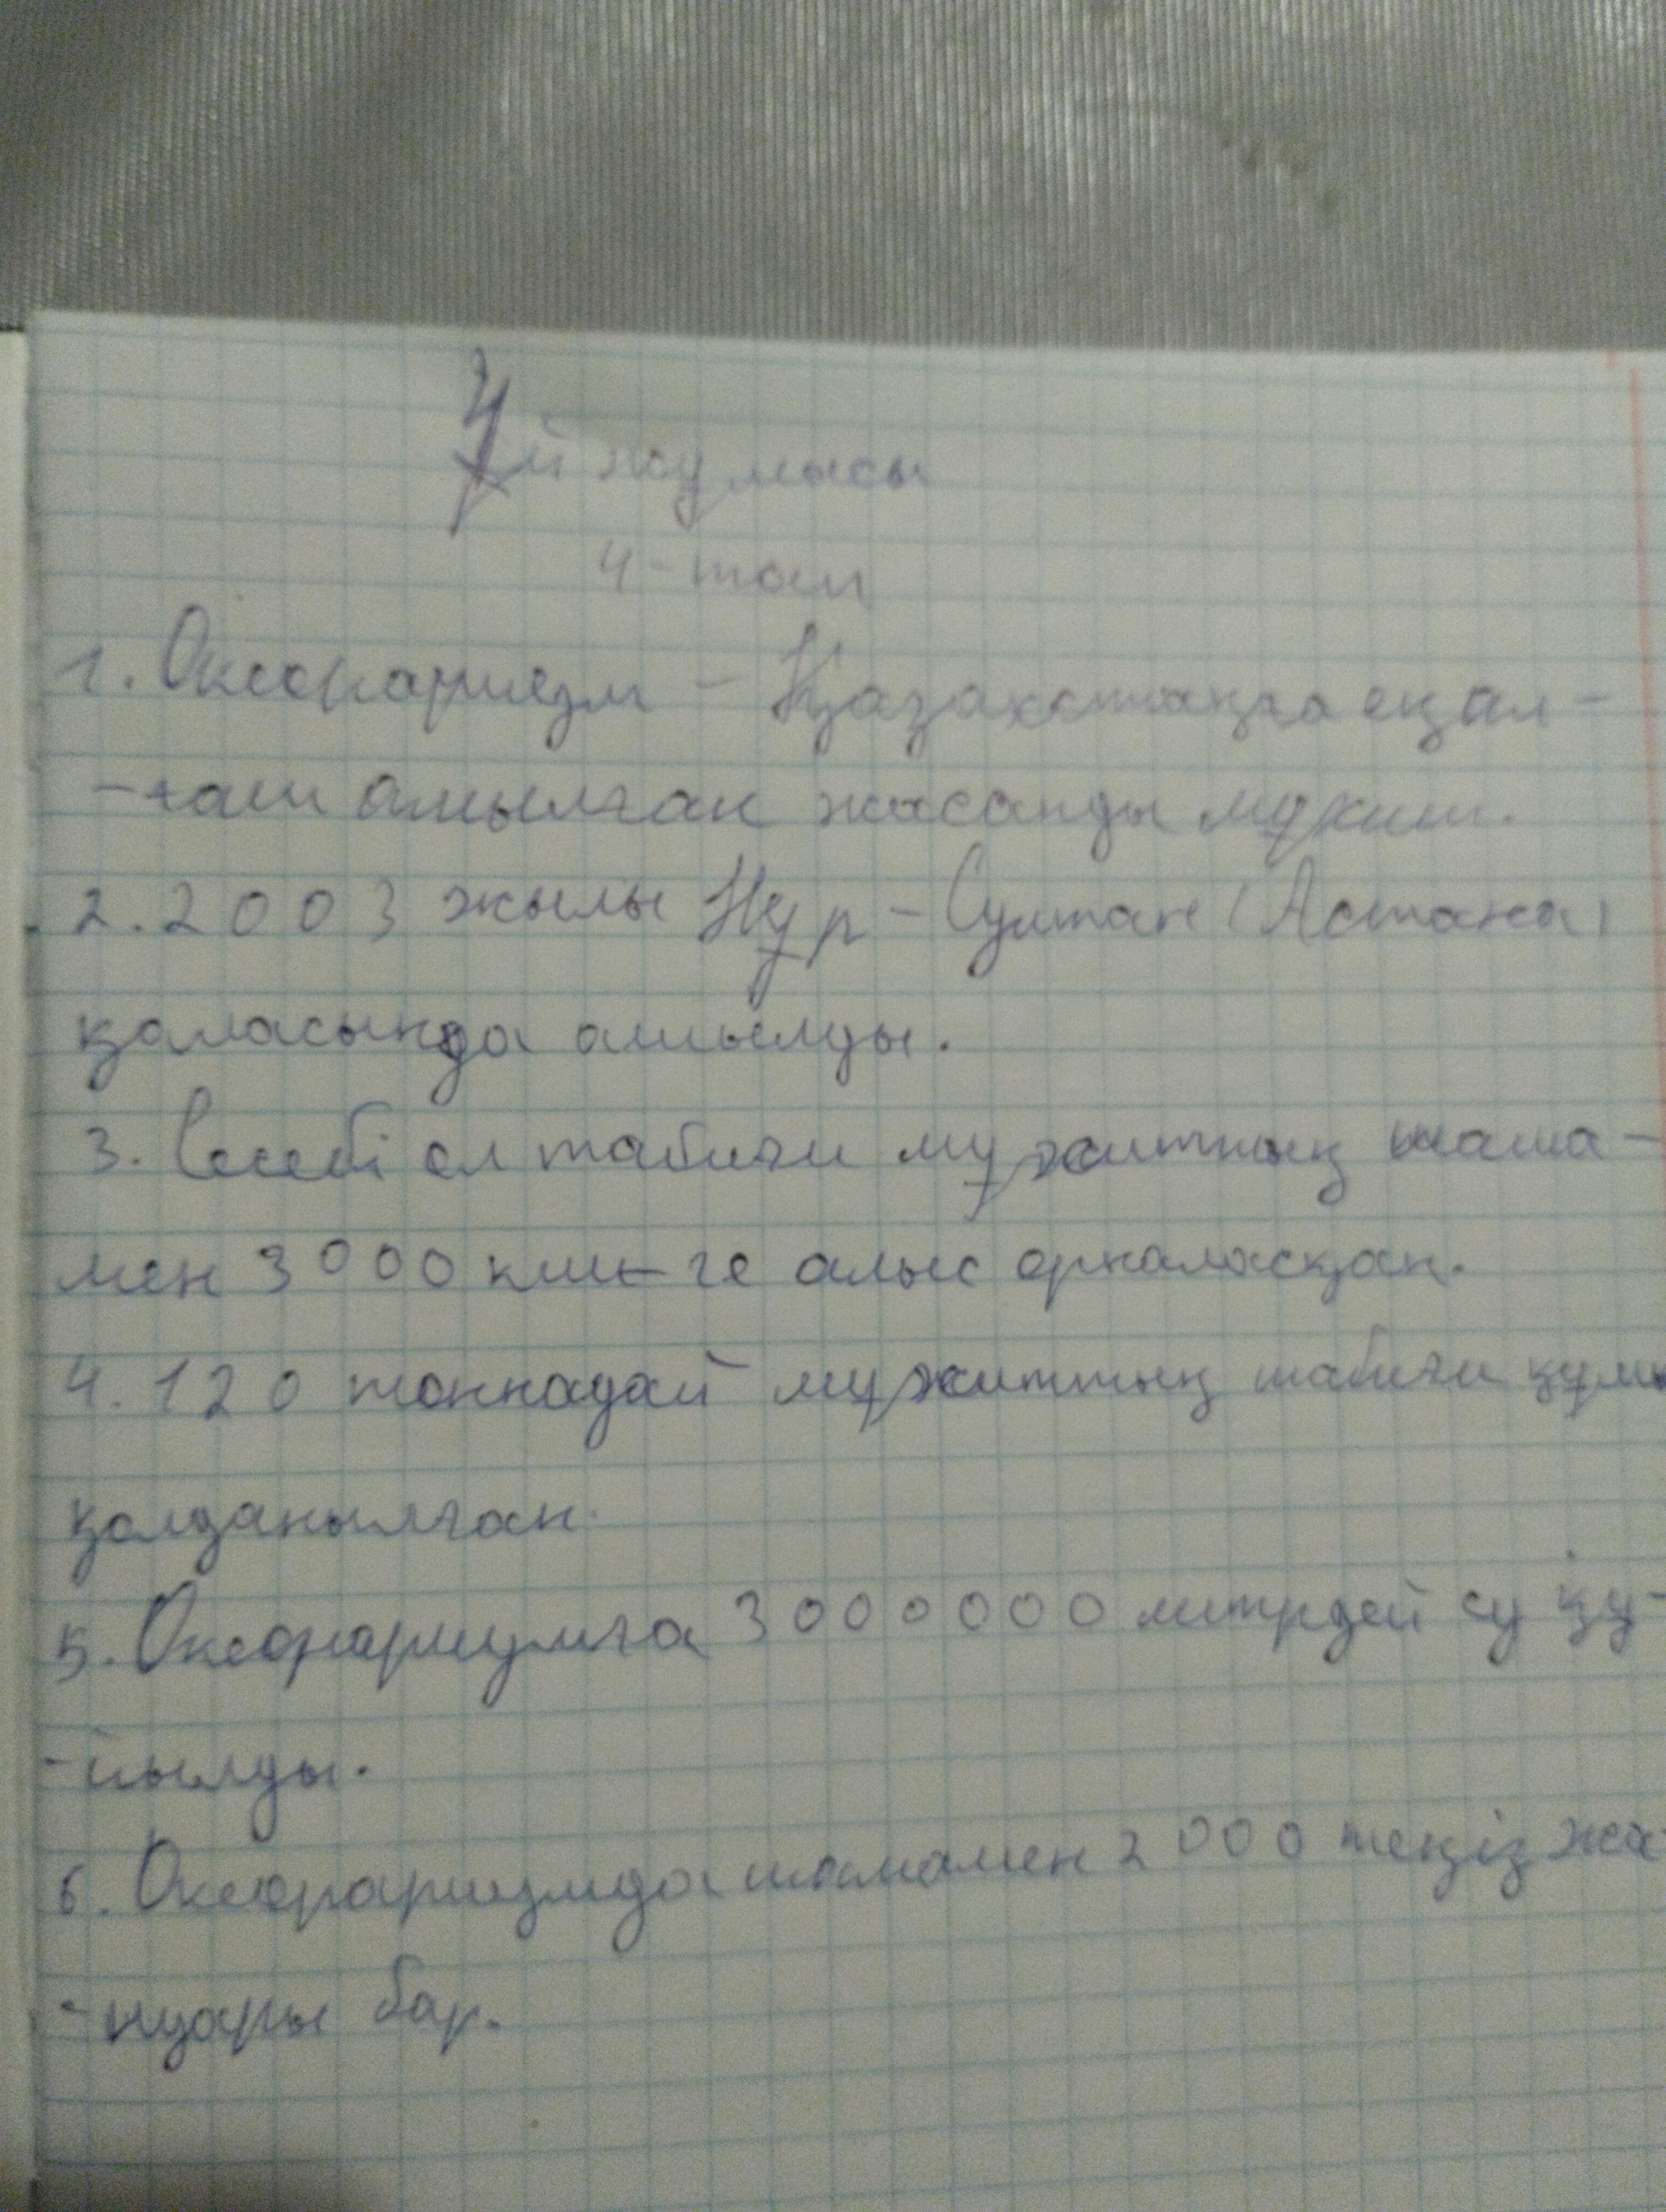 Үй жұмысы
4-топ
1. Океонариум - Қазақстанға еңал-
-ғаш ашылған жасанды мұхит.
2. 2003 жылы Нұр-Султан (Астана)
қаласында ашылды.
3. Себебі ол табиғи мұхиттың шама-
мен 3000 км-ге алыс орналасқан.
4. 120 тоннадай мұхиттың табиғи құмы
қолданылған.
5. Океонариумға 3000000 литрдей су құ-
-йылды.
6. Океонариумда шамамен 2000 теңіз жа-
-нуары бар.